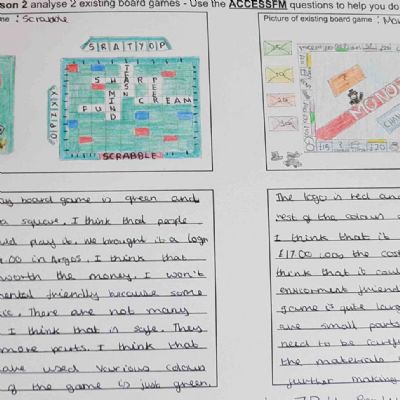 son 2 analyse 2 existing board games - Use the ACCESSFM questions to help you do
me : Scrabble
Picture of existing board game : Mo
SRATYOP
SHARPE
FUN
CREAM
SCRABBLE
MONO
board game is green and
a square. I think that people
uld play it. We brought it a lo
.00 in Argos. I think that
worth the money. I won't
mental friendly because some
There are not many
I think that is safe. They
more parts. I think that
ave used various colours
of the game is just green.
The logo is red and
rest of the colour
I think that it
£17.00 was the cost
think that it cou
enviorment friend
game is quite larg
are small parts
need to be careful
the materials
further making